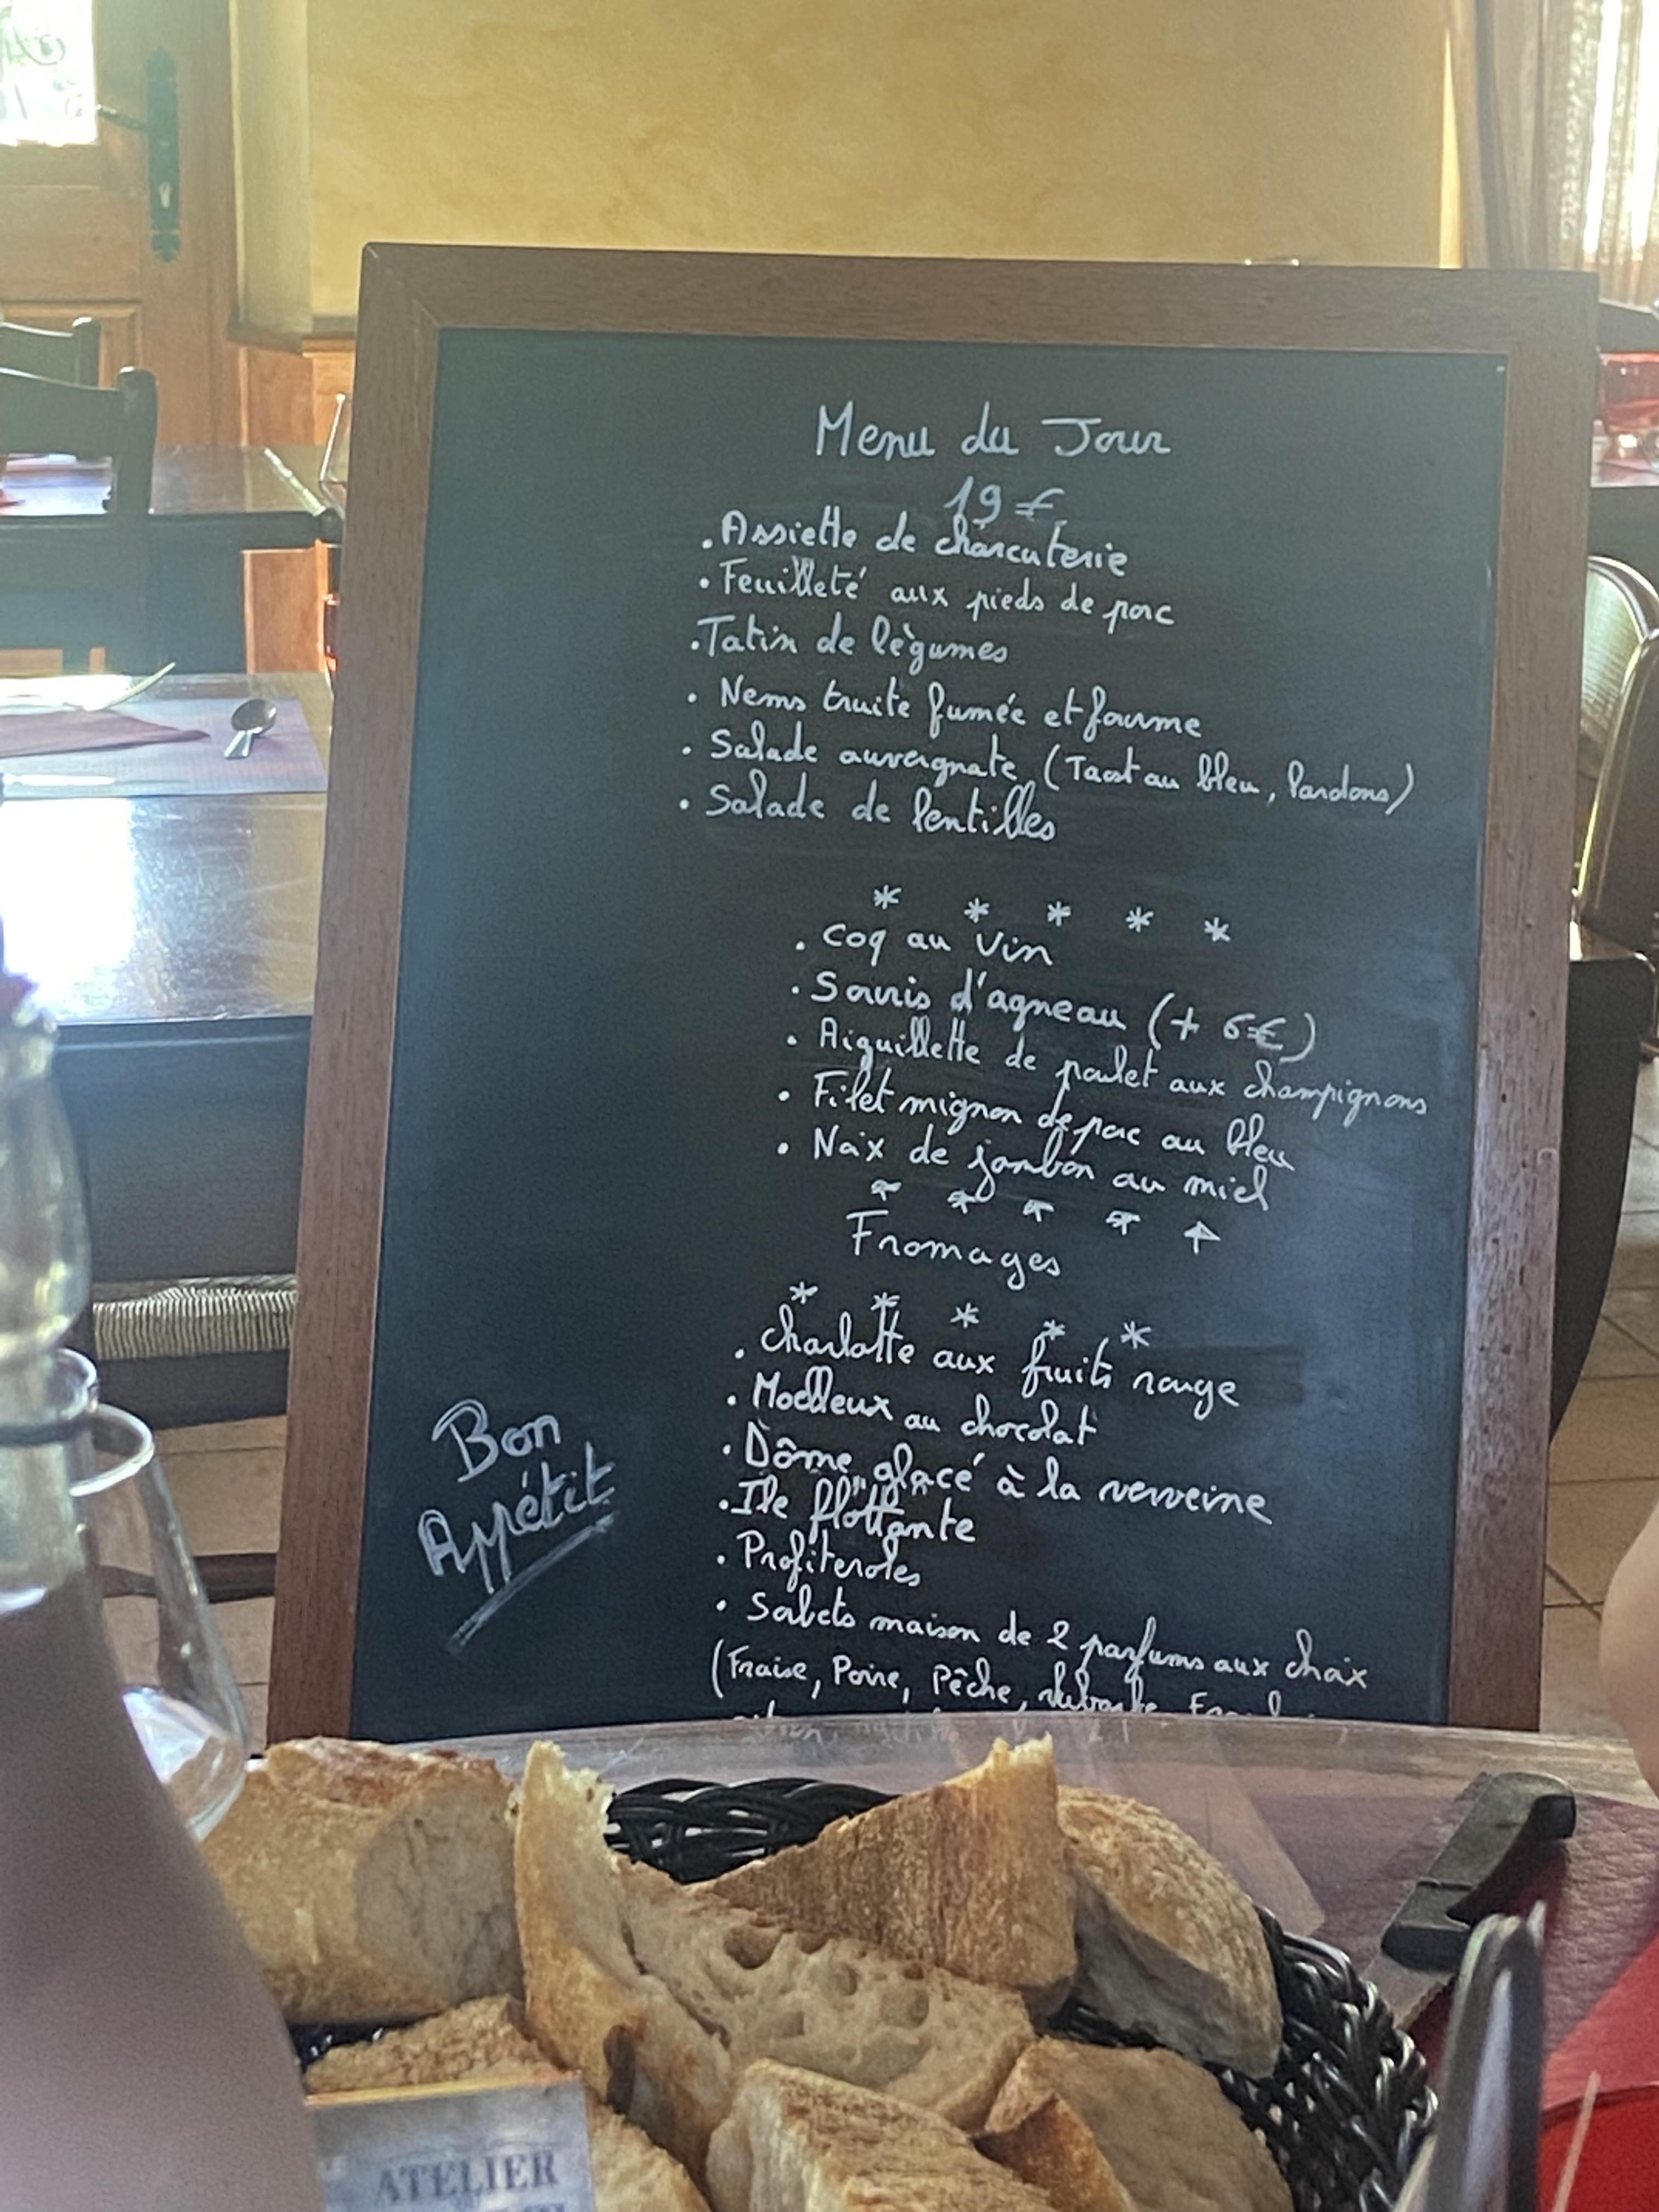 Menu du Jour
19 €
. Assiette de charcuterie
. Feuilleté aux pieds de porc
. Tatin de lègumes
. Nems truite fumée et fourme
. Salade auvergnate (Toast au bleu, lardons)
. Salade de lentilles
* * * * *
. Coq au Vin
. Souris d'agneau (+ 6€)
. Aiguillette de poulet aux champignons
. Filet mignon de porc au bleu
. Noix de jambon au miel
* * * * *
Fromages
* * * * *
. Charlotte aux fruits rouge
. Moelleux au chocolat
. Dôme glacé à la verveine
. Ile flottante
. Profiteroles
. Sorbets maison de 2 parfums aux choix
(Fraise, Poire, Pêche, rhubarbe,
Bon
Appétit
ATELIER